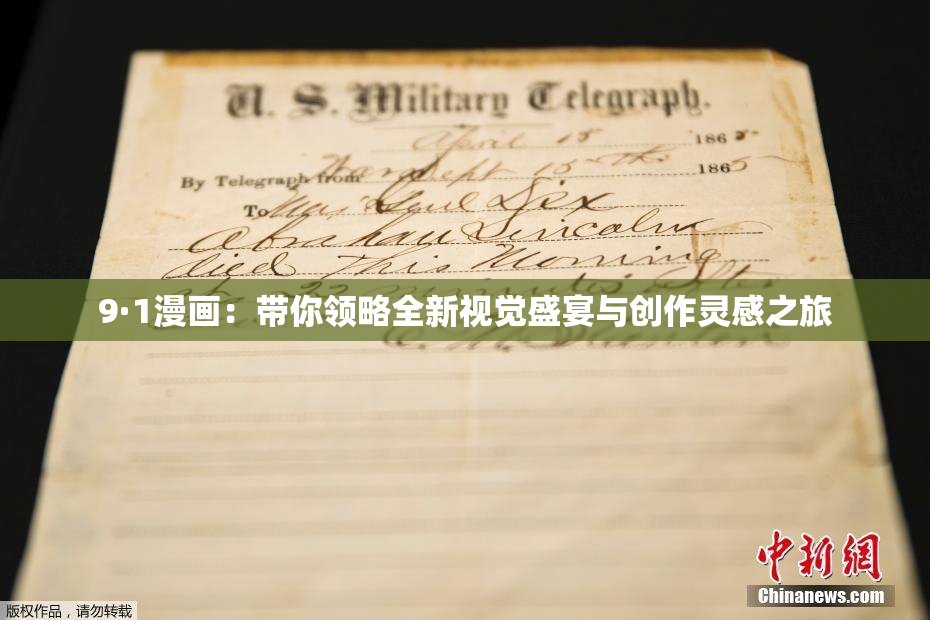 U. S. Military Telegraph.
April 15 1865
By Telegraph from War Dept 15th 1865
To Maj Genl Dix
Abraham Lincoln
died This Morning
at 22 minutes after
9·1漫画：带你领略全新视觉盛宴与创作灵感之旅
E. M. Stanton
中新網
Chinanews.com
版权作品，请勿转载